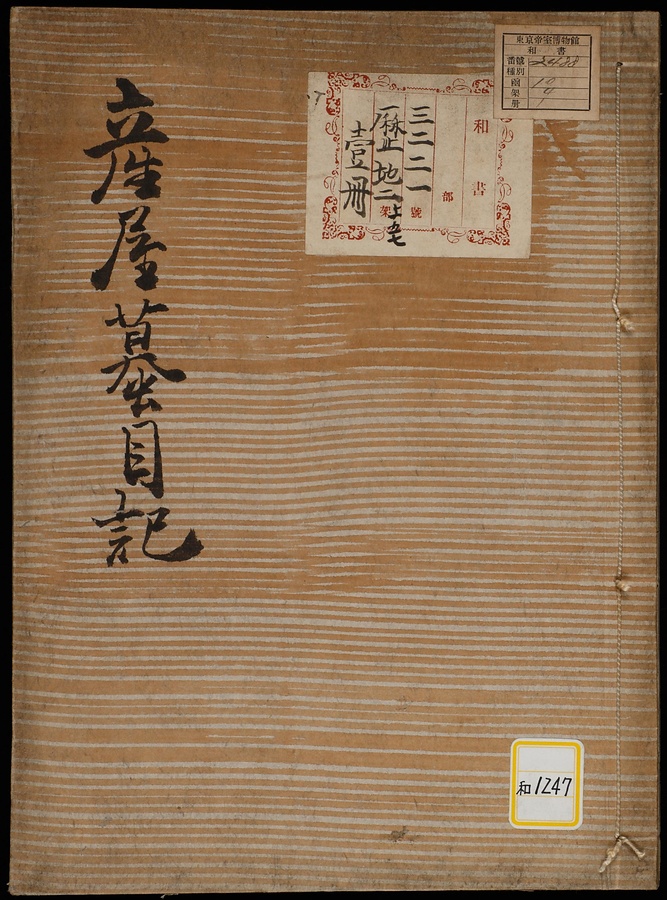 産屋蟇目記
東京帝室博物館
和書
番號
種別
函 10
架
册 1
和書
部
三二二一號
歴地二
架
壹冊
和1247